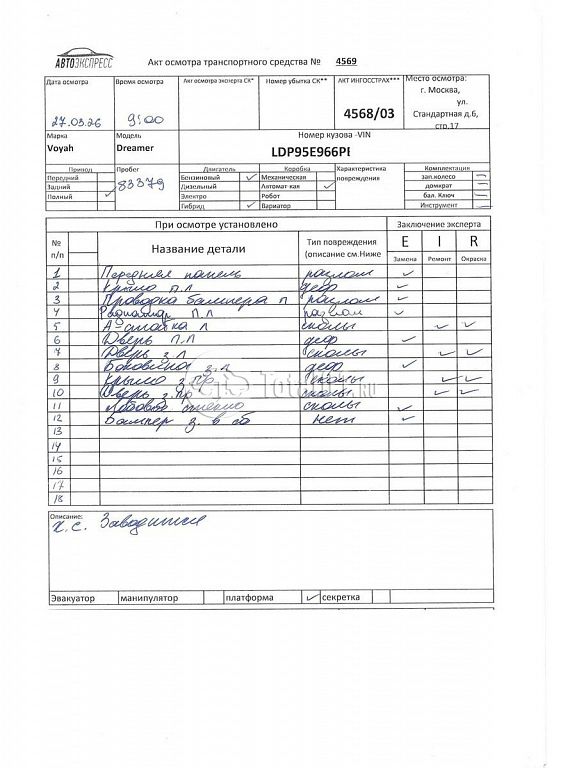 АВТОЭКСПРЕСС
Акт осмотра транспортного средства № 4569
Дата осмотра Время осмотра Акт осмотра эксперта СК* Номер убытка СК** АКТ ИНГОССТРАХ*** Место осмотра:
г. Москва,
ул.
Стандартная д.6,
стр.17
27.03.26 9:00 4568/03
Марка Модель Номер кузова -VIN
Voyah Dreamer LDP95E966PI
Привод Пробег Двигатель Коробка Характеристика повреждения Комплектация
Передний 83379 Бензиновый Механическая зап.колесо
Задний Дизельный Автомат кая домкрат
Полный Электро Робот бал. Ключ
Гибрид Вариатор Инструмент
При осмотре установлено Заключение эксперта
№ п/п Название детали Тип повреждения (описание см.Ниже E I R
Замена Ремонт Окраска
1 Передняя панель разлом
2 Крыло п.л деф
3 Проводка бампера п разлом
4 Радиатор п.л разлом
5 А-стойка л сколы
6 Дверь п.л деф
7 Дверь з.л сколы
8 Боковина з.л деф
9 Крыло з.пр сколы
10 Дверь з.пр сколы
11 Лобовое стекло сколы
12 Бампер з. в сб нет
13
14
15
16
17
18
Описание:
х.с. Заводится
Эвакуатор манипулятор платформа секретка